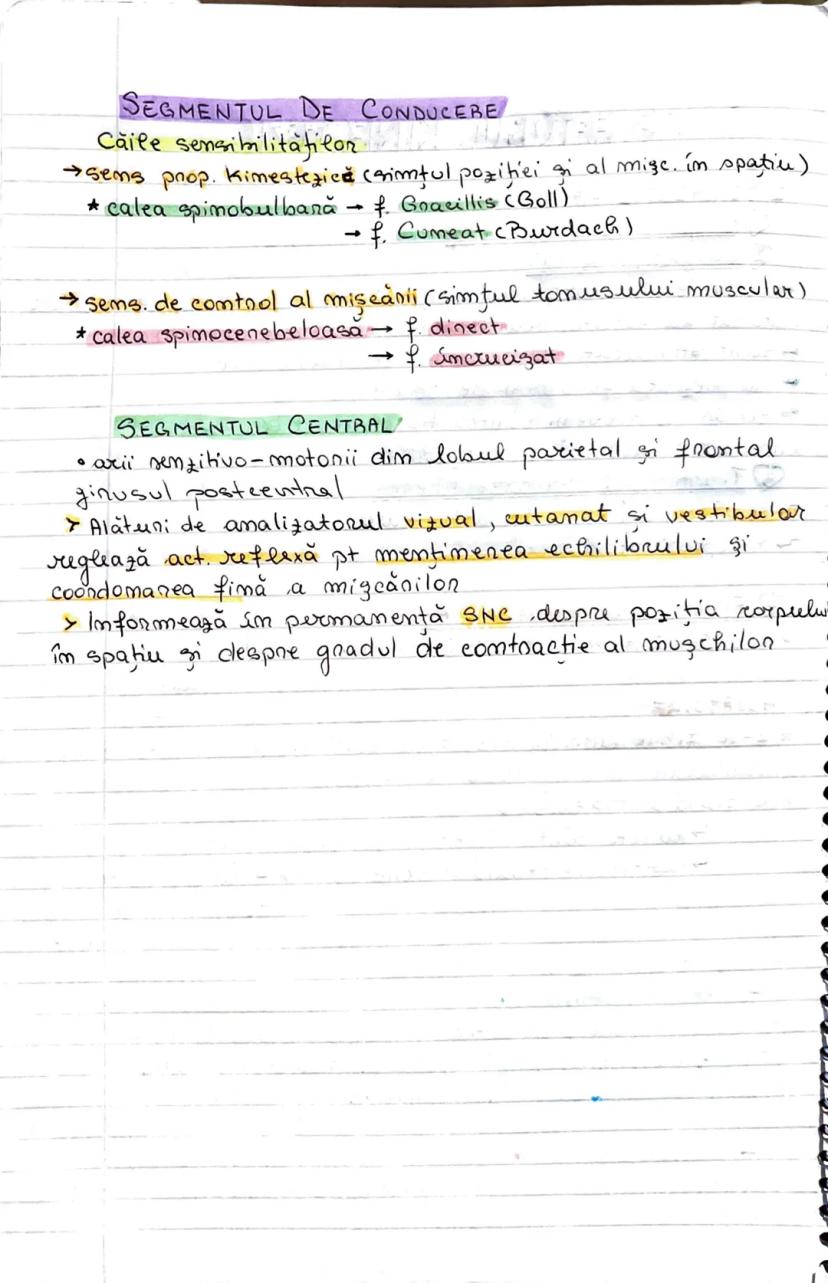 SEGMENTUL DE CONDUCERE
Căile sensibilităților
→ sens prop. Kinestezică (simțul poziției și al mișc. în spațiu)
* calea spinobulbară → f. Gracillis (Goll)
→ f. Cuneat (Burdach)
→ sens. de control al mișcării (simțul tonusului muscular)
* calea spinocerebeloasă → f. direct
→ f. încrucișat
SEGMENTUL CENTRAL
• arii senzitivo-motorii din lobul parietal și frontal
girusul postcentral
➤ Alături de analizatorul vizual, cutanat și vestibular
reglează act. reflexă pt menținerea echilibrului și
coordonarea fină a mișcărilor
➤ Informează în permanență SNC despre poziția corpului
în spațiu și despre gradul de contracție al mușchilor